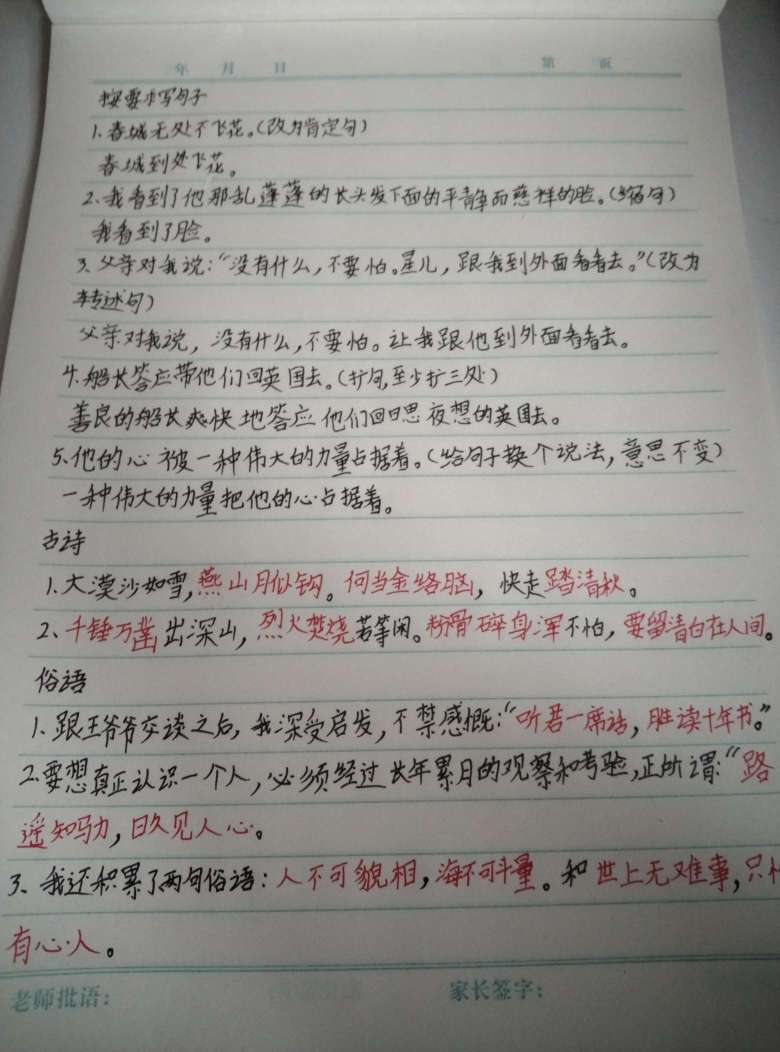 年 月 日 第 页
按要求写句子
1、春城无处不飞花。(改为肯定句)
春城到处飞花。
2、我看到了他那乱蓬蓬的长头发下面的平静而慈祥的脸。(缩句)
我看到了脸。
3、父亲对我说:“没有什么,不要怕。星儿,跟我到外面看看去。”(改为
转述句)
父亲对我说,没有什么,不要怕。让我跟他到外面看看去。
4、船长答应带他们回英国去。(扩句,至少扩三处)
善良的船长爽快地答应他们回日思夜想的英国去。
5、他的心被一种伟大的力量占据着。(给句子换个说法,意思不变)
一种伟大的力量把他的心占据着。
古诗
1、大漠沙如雪,燕山月似钩。何当金络脑,快走踏清秋。
2、千锤万凿出深山,烈火焚烧若等闲。粉骨碎身浑不怕,要留清白在人间。
俗语
1、跟王爷爷交谈之后,我深受启发,不禁感慨:“听君一席话,胜读十年书。”
2.要想真正认识一个人,必须经过长年累月的观察和考验,正所谓:“路
遥知马力,日久见人心。
3、我还积累了两句俗语:人不可貌相,海不可斗量。和世上无难事,只
有心人。
老师批语: 家长签字: